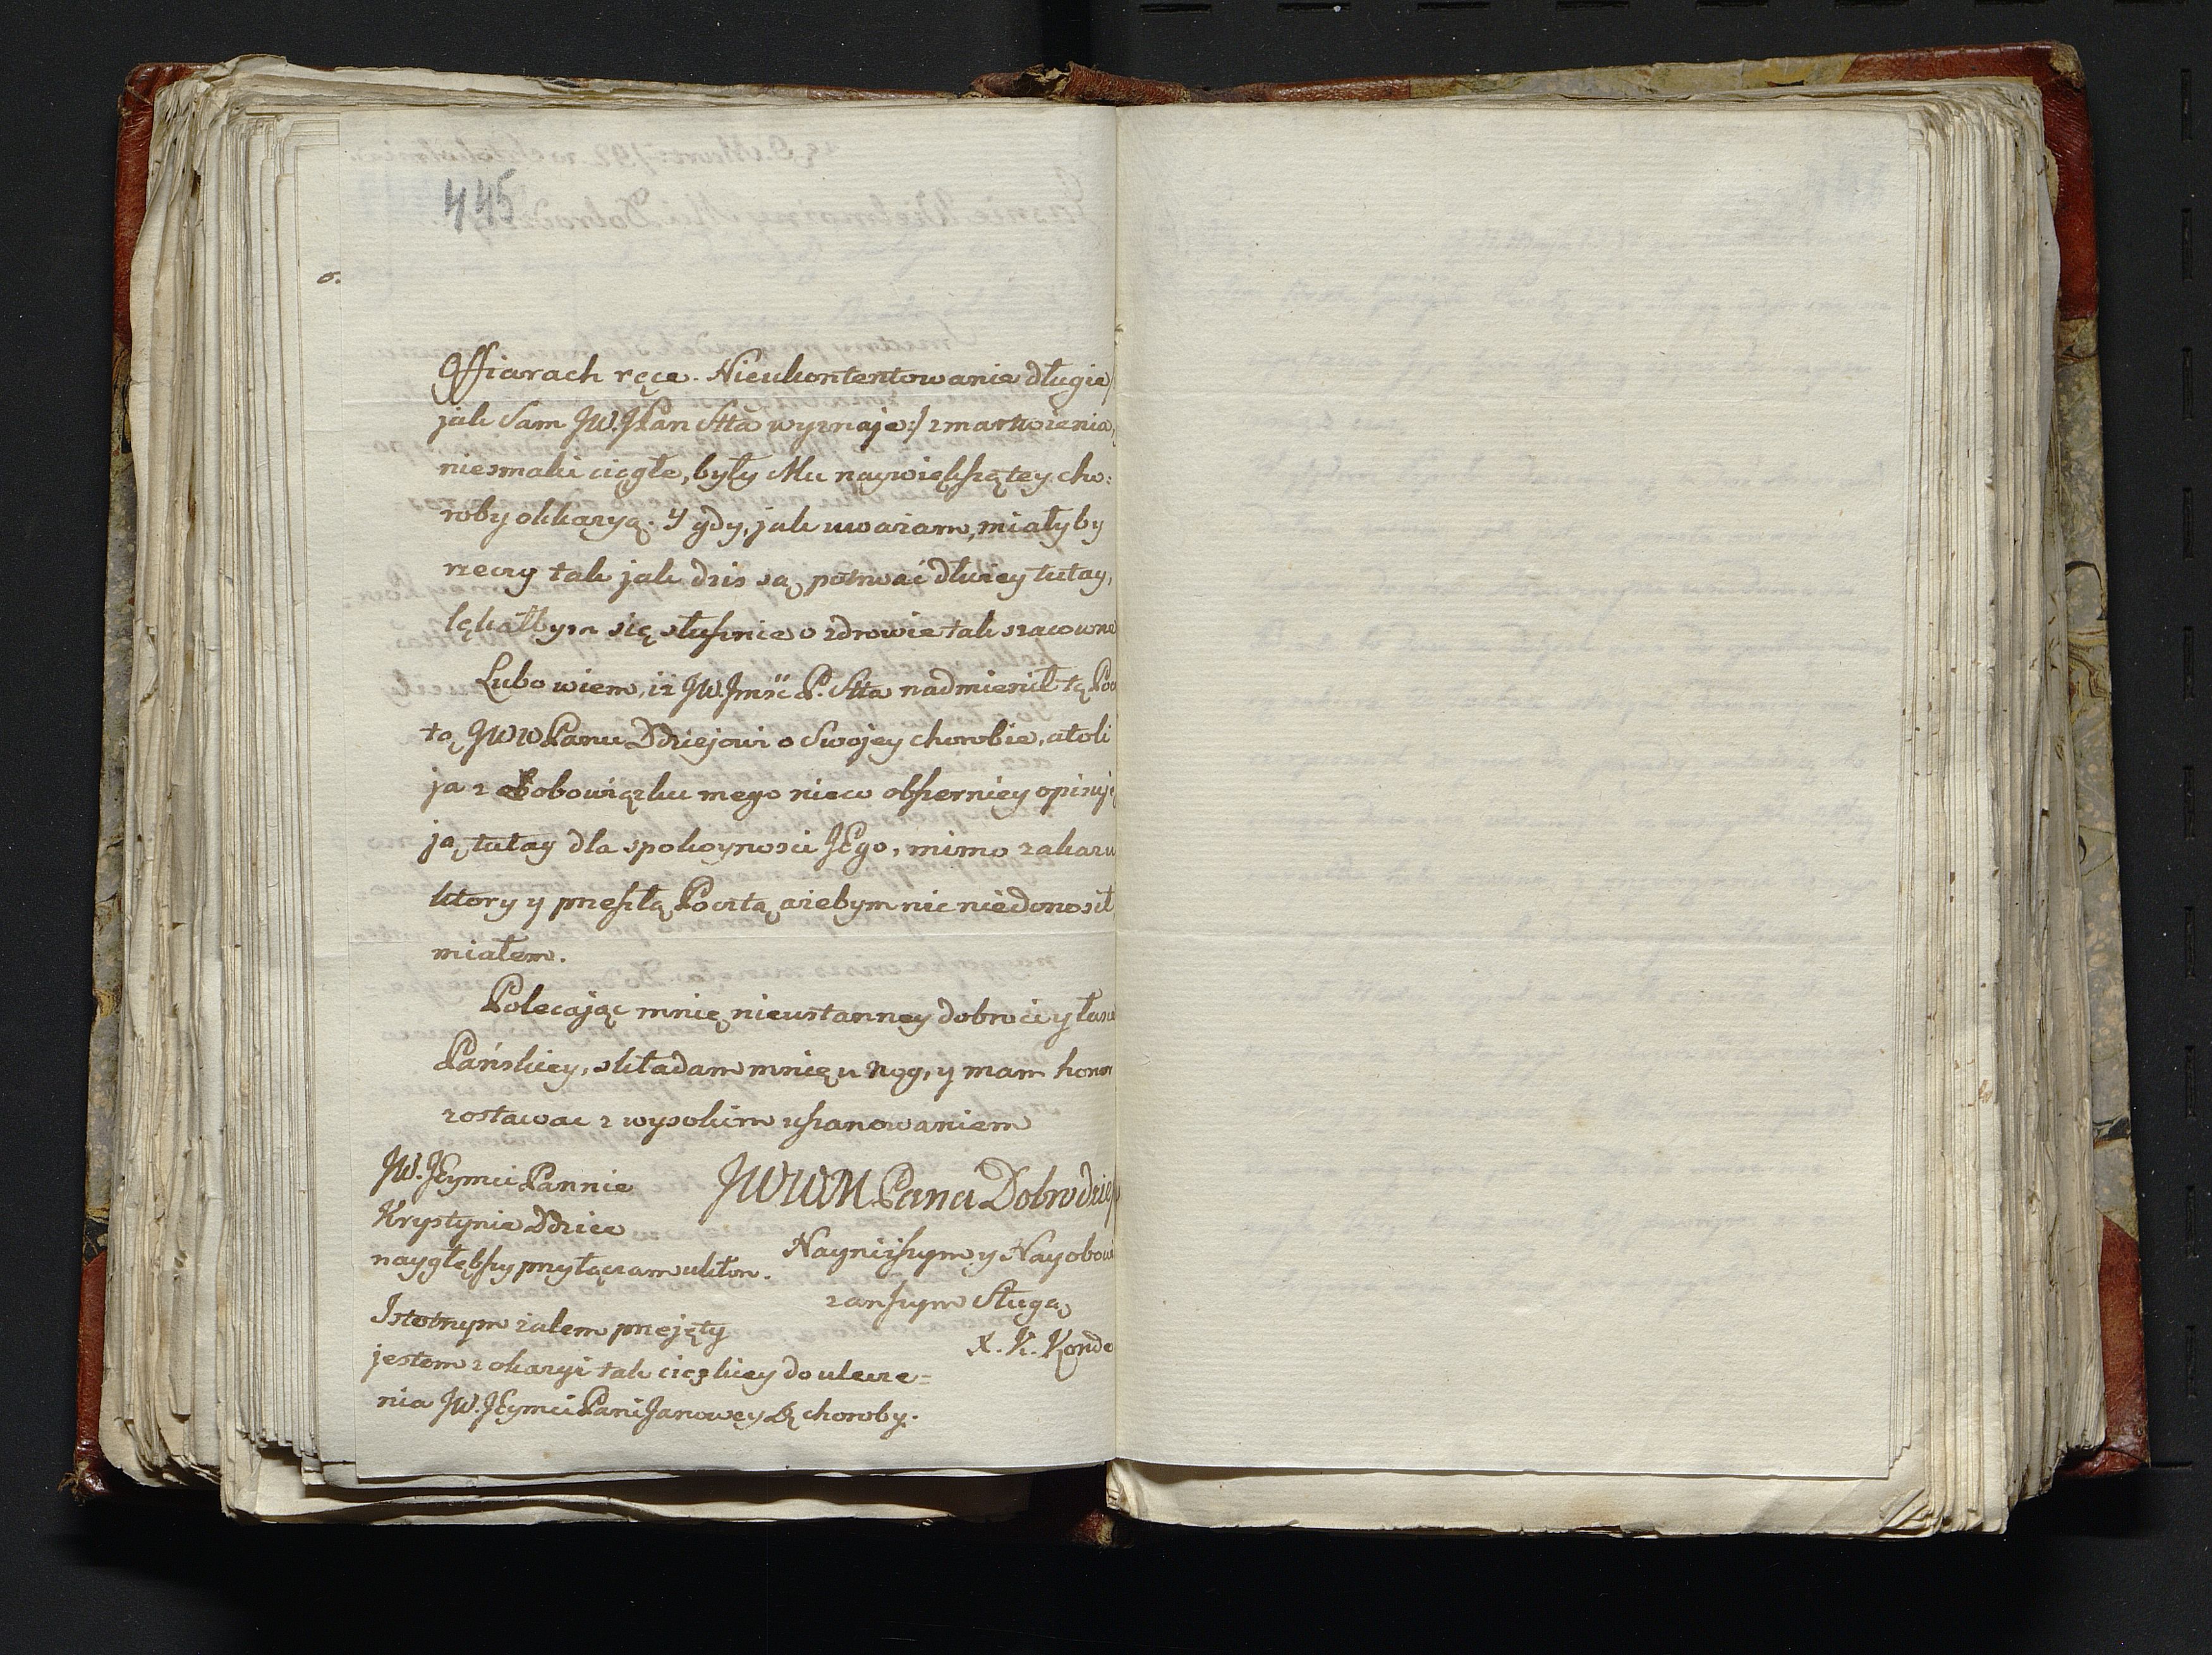 445
Offiarach ręce. Nieukontentowanie długie/
jak Sam JW. JPan Stta wyznaje:/ zmartwienia,
niesmaki ciągłe, były Mu naywiększą tey cho:
roby okkazyą. Y gdy, jak uważam, miałyby
rzeczy tak jak dzis są, potrwać dłużey tutay,
lękałbym się słusznie o zdrowie tak szacowne
Lubo wiem, iż JW. Jmść P. Stta nadmienił tą Pocz
tą, JWWPanu Ddziejowi o Swojey chorobie, atoli
ja z obowiązku mego nieco obszerniey opisuję
ją, tutay dla spokoynosci JEgo, mimo zakazu
ktory y przeszłą Pocztą, ażebym nic niedonosił
miałem.
Polecając mnię nieustanney dobroci y łasce
Pańskiey, składam mnię u nog, y mam honor
zostawac z wysokim uszanowaniem
JWWM Pana Dobrodzieja
Nayniższym y Nayobow
zanszym Sługą
X. K. Konde
JW. JEymci Pannie
Krystynie Ddzice
naygłębszy przyłączam ukłon.
Istotnym żalem przejęty
jestem z okazyi tak cięzkiey do ulecze=
nia JW. JEymci Pani Janowey choroby.